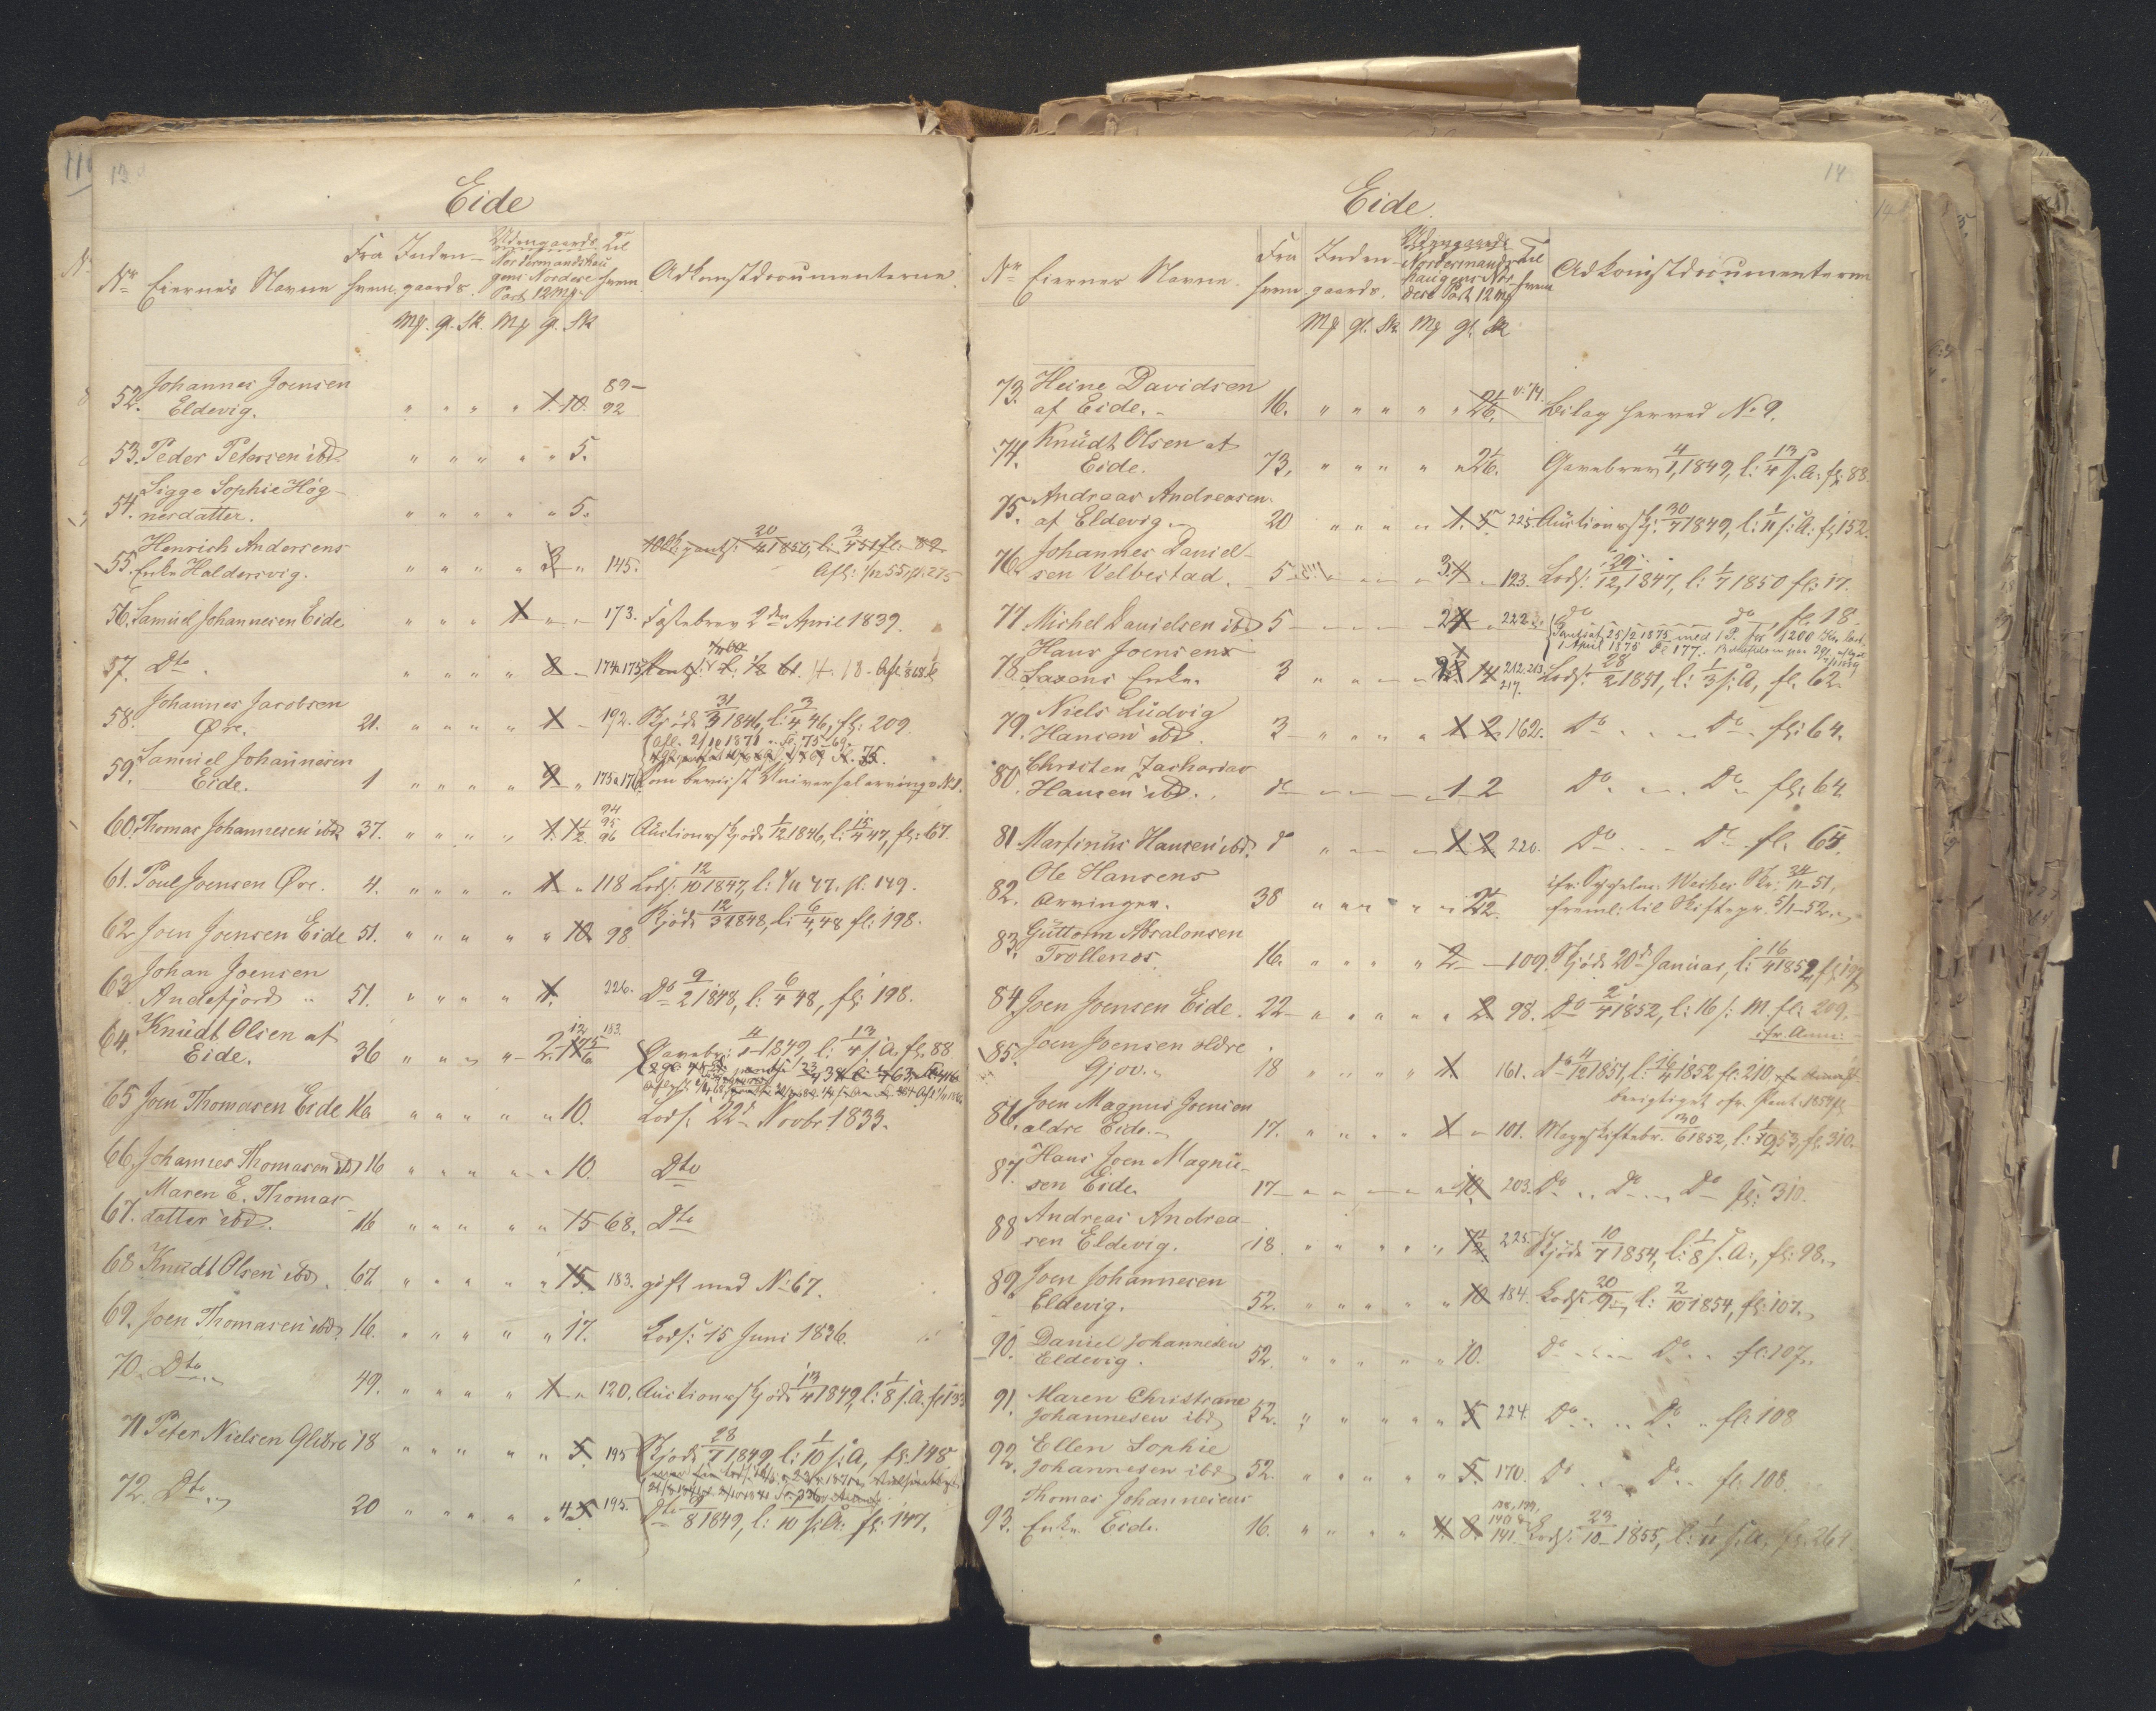 119
13
Eide
Nr Eiernes Navne Fra hvem Inden-gaards. Udengaards Nordermandshau gens Nordere Part 12 Mp. Til hvem Adkomstdocumenterne
Mp. g. Sk. Mp g. Sk
52. Johannes Joensen
Eldevig. " " " " 1. 10. 89-
92
53. Peder Petersen ibd " " " " " 5.
54. Sigge Sophie Høg-
nesdatter. " " " " " 5.
55. Henrich Andersens
Enke Haldersvig. " " " " 3 " 145.
Afl: 1/12 55, fl. 275
56. Samuel Johannesen Eide " " " 1 " " 173. Fæstebrev 2den April 1839.
57. Dto. " " " " 8 " 174 175
58. Johannes Jacobsen
Øre. 21. " " " " 1 - 192. Skjöde 31/3 1846, l: 3/4 46, fl: 209.
59. Samuel Johannesen
Eide. 1 " " " " 9 " 175 176 Som beviist Universalarving
60. Thomas Johannesen ibd 37. " " " " 1. 1 1/2. 94
95
96 Auctionsskjöde 1/12 1846, l: 15/4 47, fl: 67.
61. Poul Joensen Øre. 4. " " " " 1 " 118 Lods: 12/10 1847, l: 1/11 47. fl. 149.
62 Joen Joensen Eide 51. " " " " " 10 98 Skjöde 12/3 1848, l: 6/4 48 fl: 198.
63. Johan Joensen
Andefjord " 51. " " " " 1. 226. Do 9/2 1848, l: 6/4 48, fl: 198.
64. Knüdt Olsen af
Eide. 36 " " " " 2 183. Gavebr: 4/1 1849, l: 13/4 s. A. fl: 88
65 Joen Thomasen Eide 16. " " " " " 10. Lods: 22d Novbr. 1833.
66. Johannes Thomasen ibd 16 " " " " " 10. Dto
67. Maren E. Thomas-
datter ibd. 16 " " " " " 15 68. Dto
68 Knüdt Olsen ibd. 67. " " " " " 15. 183. gift med No 67.
69. Joen Thomasen ibd. 16. " " " " " 17. Lods: 15 Juni 1836.
70. Dto 49. " " " " 1 " 120. Auctionsskjöde 13/4 1849, l: 1/8 s. A. fl 133
71 Peter Nielsen Glibre 18 " " " " " 5. 195 Skjöde 28/7 1849, l: 1/10 s: A, fl: 148
72. Dto 20 " " " " " 195. Dto 9/8 1849, l: 10 s: A: fl: 147.
14
Eide.
Nr Eiernes Navne. Fra hvem Inden-gaards. Udengaards Nordermands haugens Nor dere Part 12 Mp Til hvem Adkomstdocumenterne
Mp gl. Sk Mp gl. Sk
73. Heine Davidsen
af Eide. 16. " " " " " v. 74. Bilag herved No 9.
74. Knüdt Olsen af
Eide. 73. " " " " " Gavebrev 4/1 1849, l: 13/4 s. A: fl: 88
75. Andreas Andreasen
af Eldevig. 20 " " " " 1. 5 225 Auctionsskj: 30/7 1849, l: 1/11 s: A: fl 152.
76. Johannes Daniel-
sen Velbestad. 5 123. Lods: 29/12 1847, l: 1/7 1850 fl: 17.
77. Michel Danielsen ibd 5 222 do do, fl. 18
78. Hans Joensens
Saxens Enke. 3 " " " 14 212. 213.
217. Lods: 28/2 1851, l: 1/3 s: A, fl. 62.
79. Niels Lüdvig
Hansen ibd. 3 " " " " 1 2 162. Do Do fl: 64.
80. Christen Zacharias
Hansen ibd. do 1 2 Do Do fl: 64
81 Martinüs Hansen ibd. do " " " " 1. 2. 220. Do Do fl. 65.
82. Ole Hansens
Arvinger. 38 " " " " freml: til Skiftepr. 5/1 52.
83. Güttorm Absalonsen
Trollenes. 16. " " " " 2 - 109. Skjöde 20de Januar, l: 16/4 1852, fl 197
84. Joen Joensen Eide. 22 " " " " " 2. 98. Do 2/4 1852, l: 16 s: M. fl: 209.
85. Joen Joensen ældre
Gjov. 18 " " " " 1 161. Do 4/12 1851, l: 16/4 1852 fl: 210
86. Joen Magnus Joensen
ældre Eide. 17. " " " " 1 " 101. Mageskiftebr. 30/6 1852, fl. 310.
87. Hans Joen Magnü-
sen Eide. 17 " " " " " 10 203. Do Do Do fl: 310.
88 Andreas Andrea-
sen Eldevig. 18. " " " " " 225. Skjöde 10/7 1854, l: 1/8 s. A:, fl: 98.
89. Joen Johannesen
Eldevig. 52. " " " " " 10 184. Lods: 20/9, l: 2/10 1854, fl: 107.
90. Daniel Johannesen
Eldevig. 52. " " " " " 10. Do Do fl: 107.
91. Maren Christiane
Johannesen ibd 52. " " " " " 5 224. Do Do fl: 108
92. Ellen Sophie
Johannesen ibd 52. " " " " " 5. 170. Do Do fl: 108.
93. Thomas Johannesens
Enke Eide. 16. " " " " 141. Lods: 23/10 1855, l: 1/11 s: A, fl. 269.